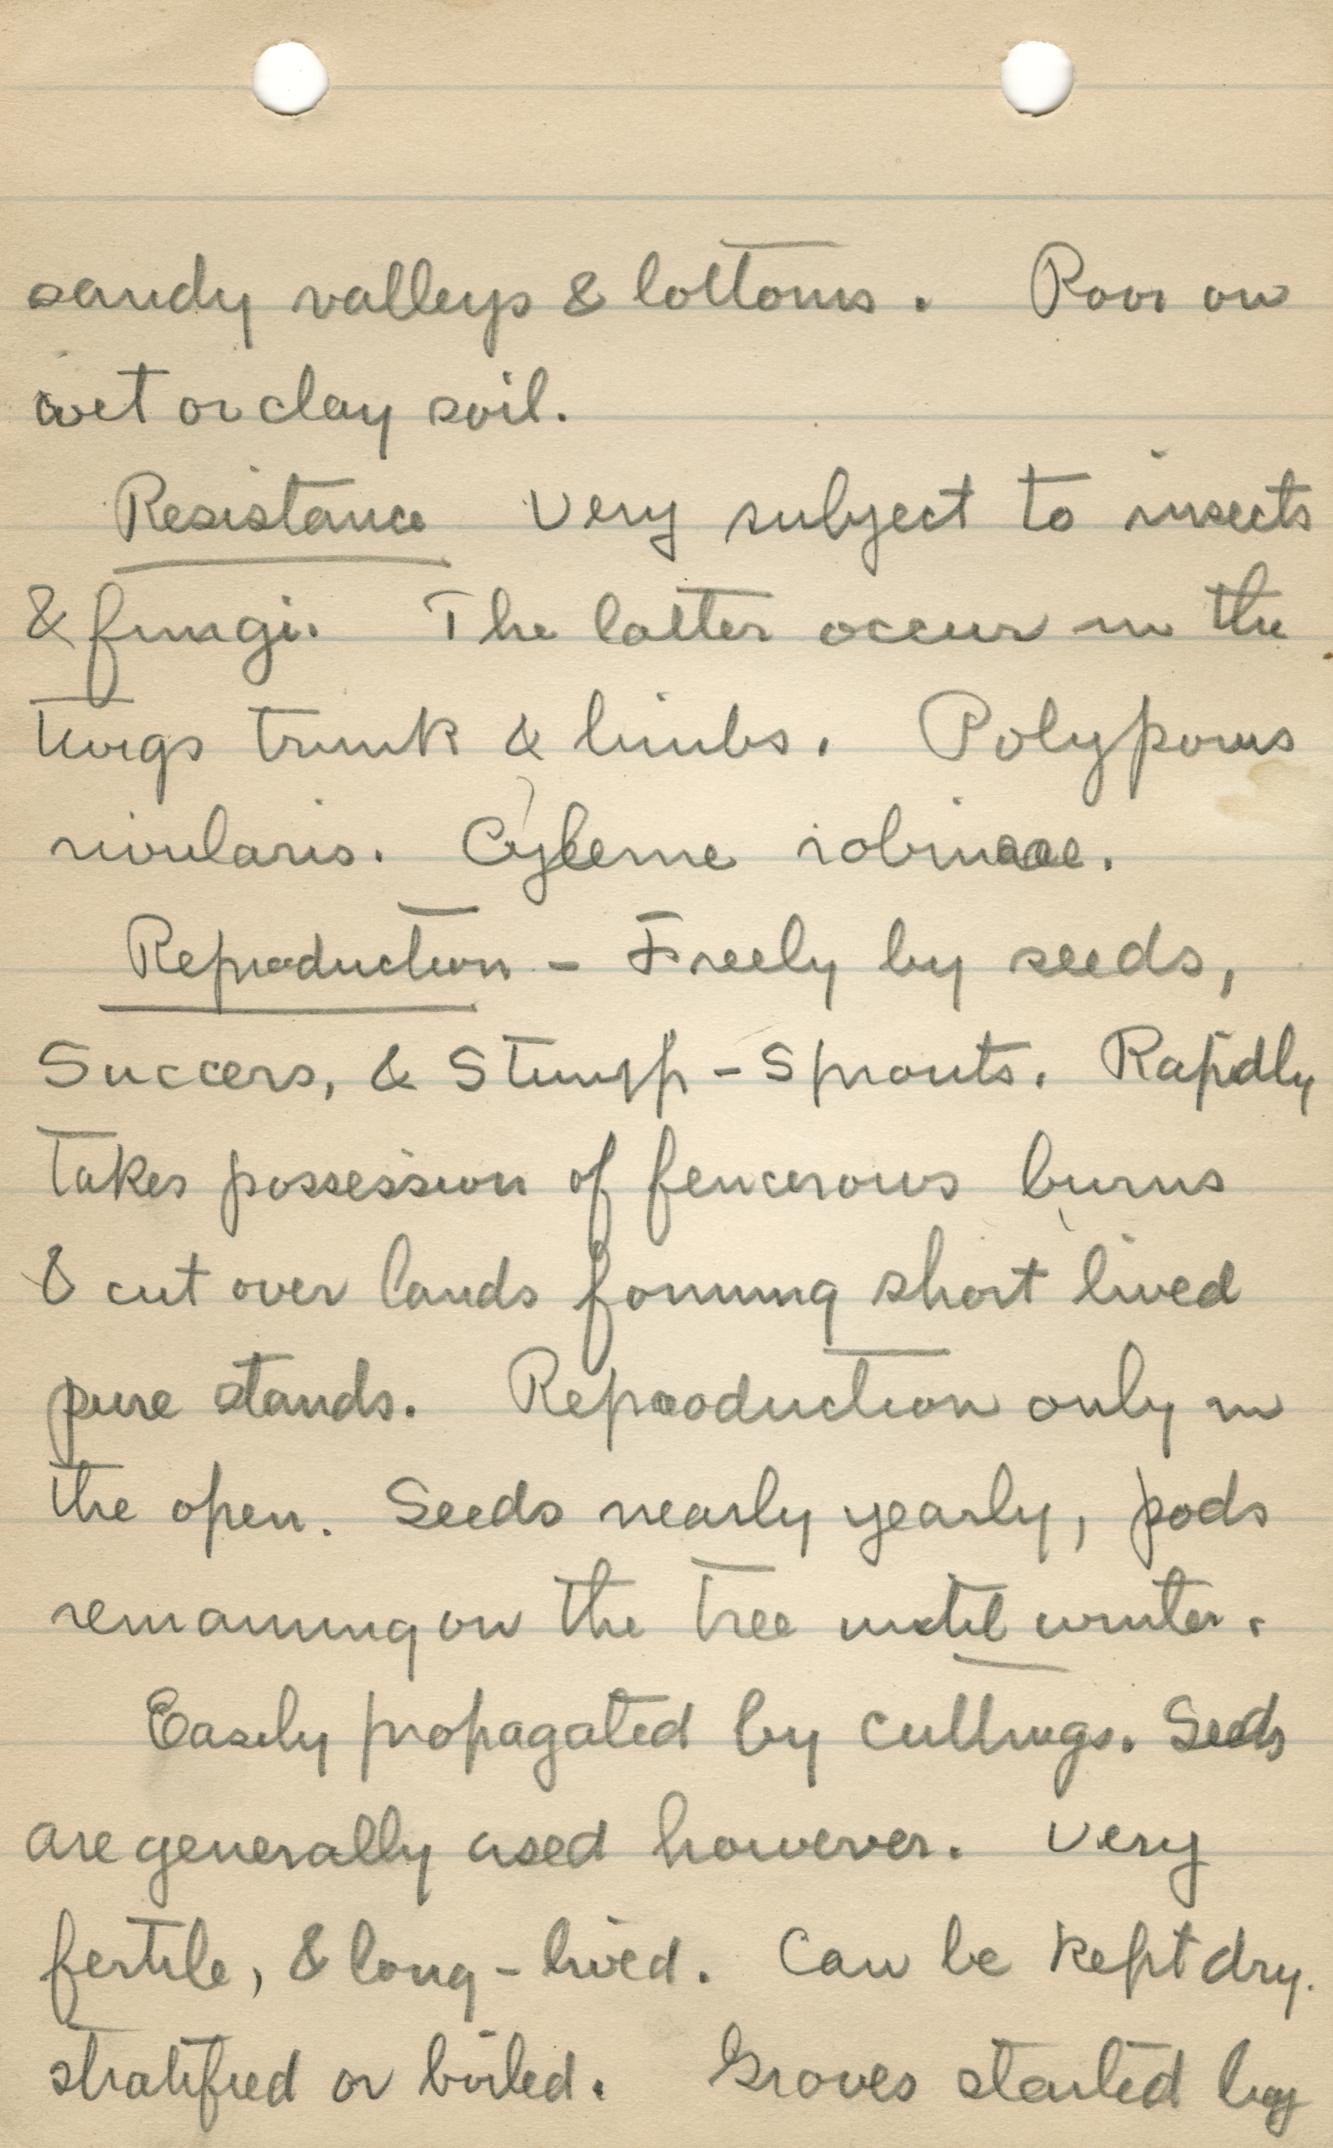 sandy valleys & bottoms. Poor on
wet or clay soil.
Resistance Very subject to insects
& fungi. The latter occur in the
twigs trunk & limbs. Polyporus
rivularis. Cylleme robineae.
Reproduction - Freely by seeds,
Succers, & Stump-Sprouts. Rapidly
takes possession of fencerows burns
& cut over lands forming short lived
pure stands. Reproduction only in
the open. Seeds nearly yearly, pods
remaining on the tree until winter.
Easily propagated by cuttings. Seeds
are generally used however. Very
fertile, & long-lived. Can be kept dry.
stratified or boiled. Groves started by